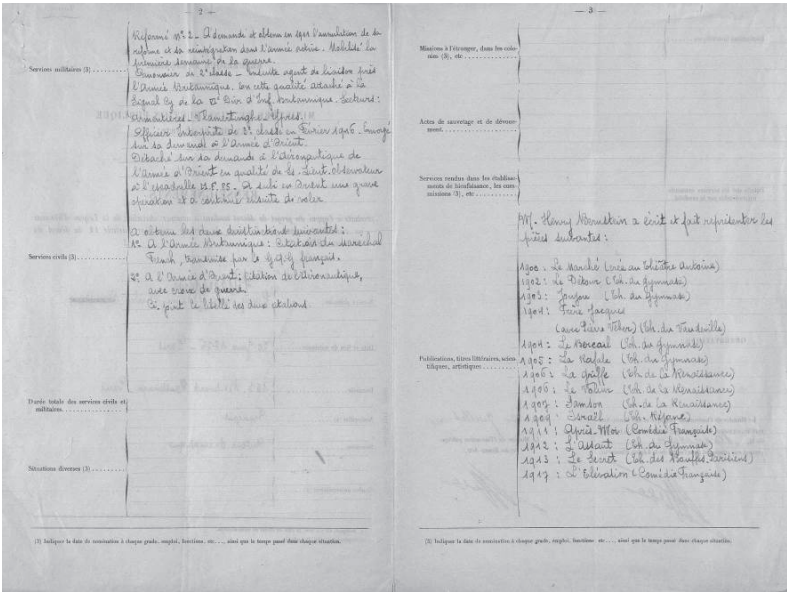 — 2 —
Réformé n° 2. A demandé et obtenu en 1911 l'annulation de sa
réforme et sa réintégration dans l'armée active. Mobilisé la
première semaine de la guerre.
Services militaires (3)
Canonnier de 2e classe. Ensuite agent de liaison près
l'Armée Britannique. En cette qualité attaché à la
Signal Cy de la Don d'Inf. Britannique. Secteurs:
Armentières. Vlamertinghe. Ypres.
Officier Interprète de 3e classe en Février 1916. Envoyé
sur sa demande à l'Armée d'Orient.
Détaché sur sa demande à l'Aéronautique de
l'Armée d'Orient en qualité de Ss. Lieut. Observateur
à l'escadrille A subi en Orient une grave
opération et a continué ensuite de voler.
a obtenu les deux distinctions suivantes:
1° A l'Armée Britannique: Citation du Maréchal
Services civils (3)
French, transmise par le G.Q.G français.
2° A l'Armée d'Orient: Citation de l'Aéronautique,
avec croix de guerre.
Ci joint le libellé des deux citations.
Durée totale des services civils et
militaires.
Situations diverses (3)
(3) Indiquer la date de nomination à chaque grade, emploi, fonctions, etc..., ainsi que le temps passé dans chaque situation.
— 3 —
Missions à l'étranger, dans les colo-
nies (3), etc
Actes de sauvetage et de dévoue-
ment.
Services rendus dans les établisse-
ments de bienfaisance, les com-
missions (3), etc
M. Henry Bernstein a écrit et fait représenter les
pièces suivantes:
1900: Le Marché (créé au Théâtre Antoine)
1902: Le Détour (Th. du Gymnase)
1903: Joujou (Th. du Gymnase)
1904: Frère Jacques
(avec Pierre Véber) (Th. du Vaudeville)
1904: Le Bercail (Th. du Gymnase)
Publications, titres littéraires, scien-
tifiques, artistiques
1905: La Rafale (Th. du Gymnase)
1906: La Griffe (Th. de la Renaissance)
1906: Le Voleur (Th. de la Renaissance)
1907: Samson (Th. de la Renaissance)
1909: Israël (Th. Réjane)
1911: Après-Moi (Comédie Française)
1912: L'Assaut (Th. du Gymnase)
1913: Le Secret (Th. des Bouffes-Parisiens)
1917: L'Elévation (Comédie Française)
(3) Indiquer la date de nomination à chaque grade, emploi, fonctions, etc..., ainsi que le temps passé dans chaque situation.